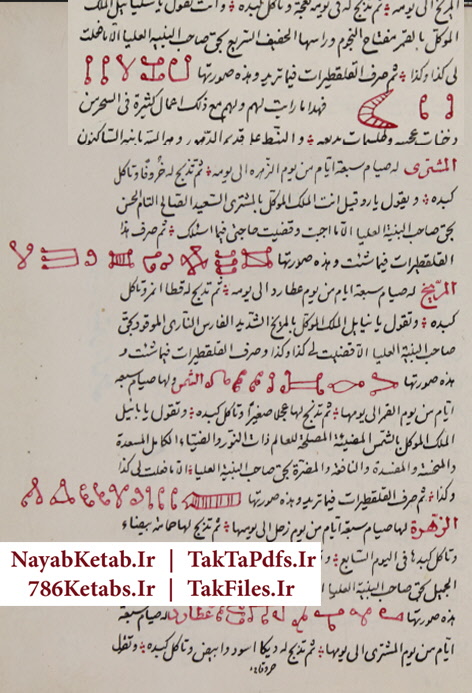 المريخ الى يومه ثم تذبح له فى يومه نعجة وتأكل كبده وانت تقول يا سلياييل الملك
الموكل بالقمر مفتاح النجوم وراسها الخفيف السريع بحق صاحب البنية العليا الا ما فعلت
لى كذا وكذا ثم صرف القلقطيرات فيما تريد وهذه صورتها
فهذا ما رايت لهم ولهم مع ذلك اعمال كثيرة فى السحر من
دخنات عجيبة
المشترى له صيام سبعة ايام من يوم الزهره الى يومه ثم تذبح له خروفا وتاكل
كبده وتقول يا روقيل انت الملك الموكل بالمشترى السعيد الصالح التام الحسن
بحق صاحب البنية العليا الا ما اجبت وقضيت حاجتى فيما اسئلك ثم صرف هذا
القلقطيرات فيما شئت وهذه صورتها
المريخ له صيام سبعة ايام من يوم عطارد الى يومه ثم تذبح له قطا انمر وتاكل
كبده وتقول يا الملك الموكل بالمريخ الشديد الفارس النارى الموقود بحق
صاحب البنية العليا الا قضيت لى كذا وكذا وصرف القلقطيرات فيما شئت و
هذه صورتها الشمس ولها صيام سبعه
ايام من يوم القمر الى يومها ثم تذبح لها عجلا صغيرا وتاكل كبده وتقول يا باييل
الملك الموكل بالشمس المضيئة المصلحة للعالم ذات النور والضياء الكامل المسعدة
والمنحسة والمفسدة والنافعة والمضرة بحق صاحب البنية العليا الا ما فعلت لى كذا
وكذا ثم صرف القلقطيرات فيما تريد وهذه صورتها
الزهرة لها صيام سبعة ايام من يوم زحل الى يومها ثم تذبح لها حمامة بيضاء
وتاكل كبدها فى اليوم السابع
الجميل بحق صاحب البنية العليا
هذه صورتها عطارد له صيام سبعه
ايام من يوم المشترى الى يومها ثم تذبح له ديكا اسود وابيض وتاكل كبده وتقول
NayabKetab.Ir | TakTaPdfs.Ir
786Ketabs.Ir | TakFiles.Ir